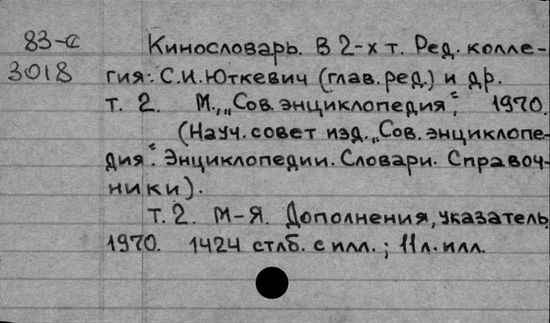 83-с Кинословарь. В 2-х т. Ред. колле-
3018 гия: С.И. Юткевич (глав. ред.) и др.
т. 2. М., „Сов. энциклопедия“, 1970.
(Науч. совет изд. „Сов. энциклопе-
дия“. Энциклопедии. Словари. Справоч-
ники).
т. 2. М-Я. Дополнения, указатель.
1970. 1424 стлб. с илл.; 11 л. илл.